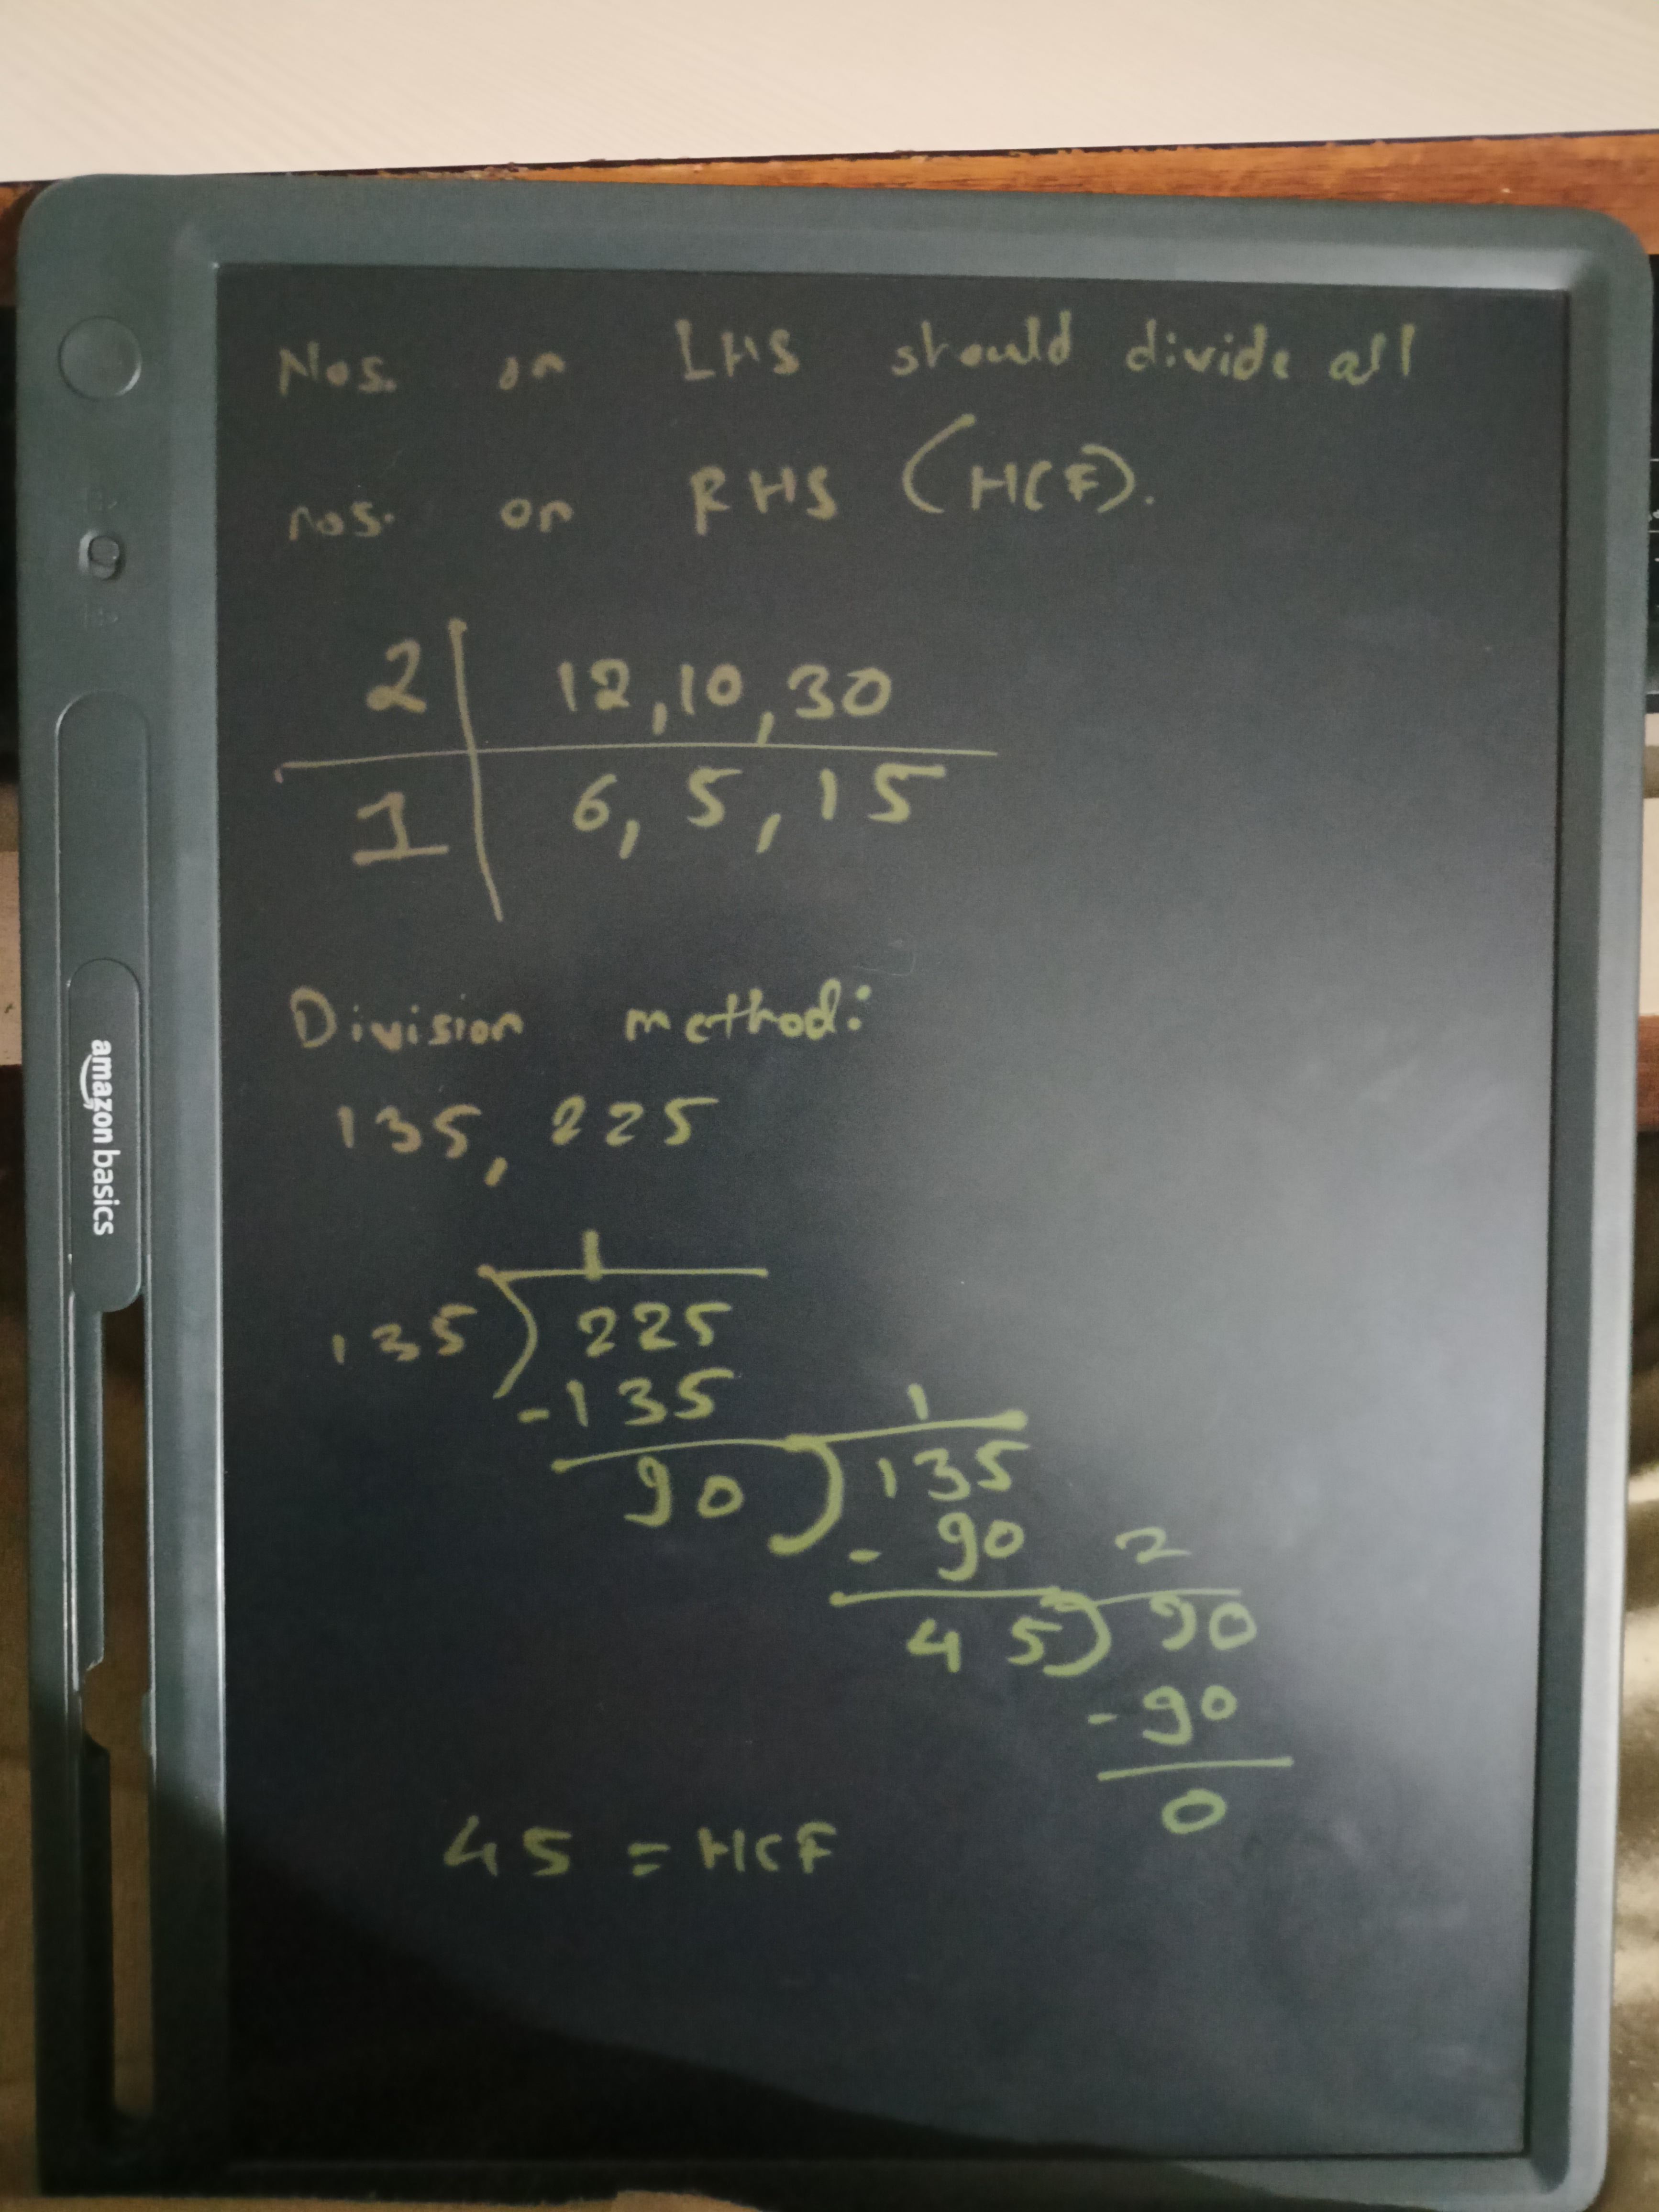 Nos. on LHS should divide all
nos. on RHS (HCF).
2 | 12, 10, 30
1 | 6, 5, 15
Division method:
135, 225
1
135) 225
-135
1
90) 135
- 90
2
45) 90
-90
0
45 = HCF
amazon basics